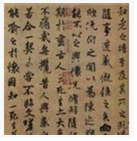 知老之將至及其所之
隨事遷感慨係之矣向
俛仰之間以為陳迹
能不以之興懷況脩短隨
期於盡古人云死生亦大
不痛哉每攬昔人興感
若合一契未嘗不臨文嗟
能喻之於懷固知一死生